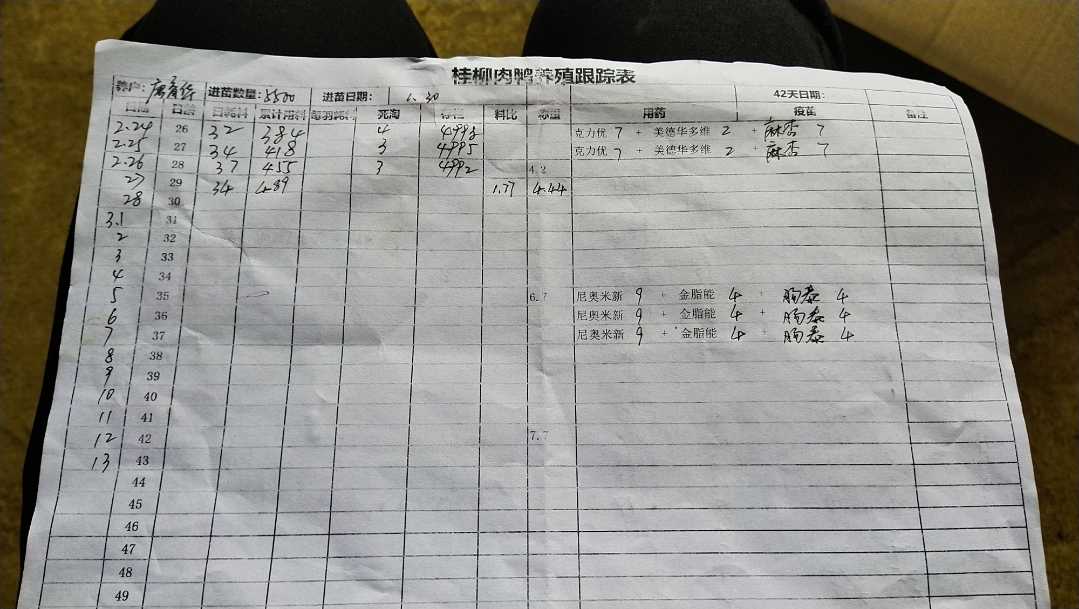 桂柳肉鸭养殖跟踪表
养户: 进苗数量:5500 进苗日期: 1.30 42天日期:
日期 日龄 日耗料 累计用料 每羽耗料 死淘 存栏 料比 称重 用药 疫苗 备注
2.24 26 32 384 4 4998 克力优 7 + 美德华多维 2 + 麻杏 7
2.25 27 34 418 3 4995 克力优 7 + 美德华多维 2 + 麻杏 7
2.26 28 37 455 3 4992 4.2
27 29 34 489 1.77 4.44
28 30
3.1 31
2 32
3 33
4 34
5 35 6.7 尼奥米新 9 + 金脂能 4 + 肠泰 4
6 36 尼奥米新 9 + 金脂能 4 + 肠泰 4
7 37 尼奥米新 9 + 金脂能 4 + 肠泰 4
8 38
9 39
10 40
11 41
12 42 7.7
13 43
44
45
46
47
48
49